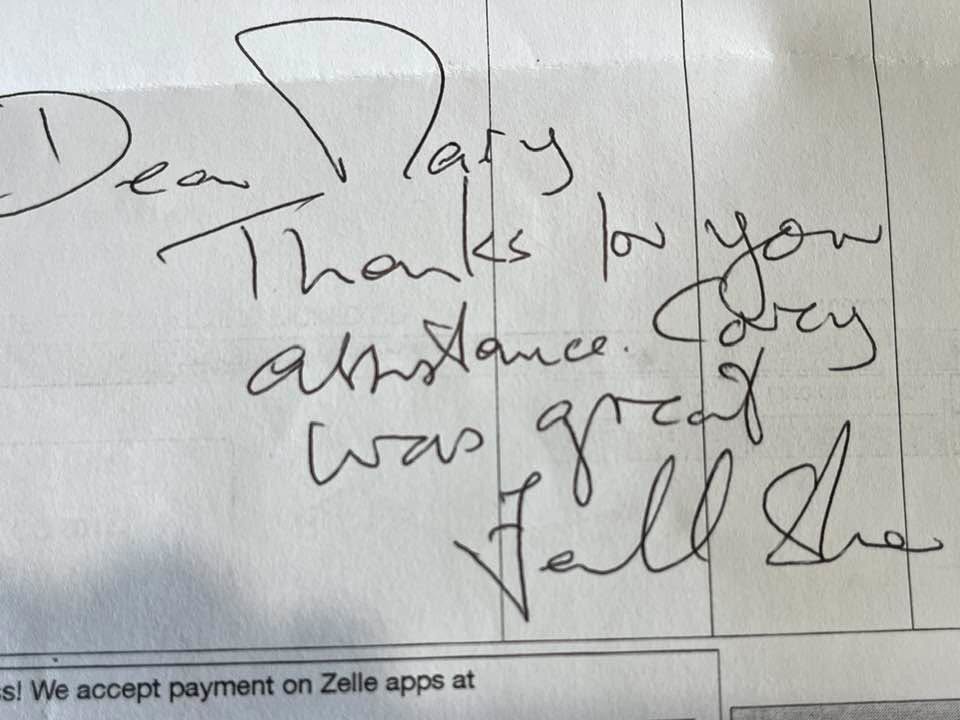 Dear Mary
Thanks for your
assistance. Corey
was great
ss! We accept payment on Zelle apps at